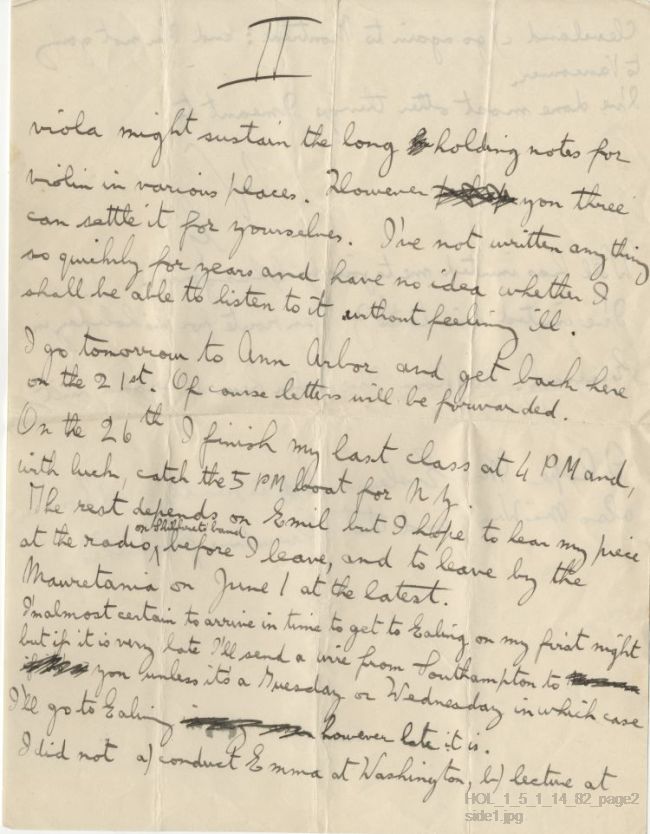 II
viola might sustain the long holding notes for
violin in various places. However you three
can settle it for yourselves. I've not written anything
so quickly for years and have no idea whether I
shall be able to listen to it without feeling ill.
I go tomorrow to Ann Arbor and get back here
on the 21st. Of course letters will be forwarded.
On the 26th I finish my last class at 4 PM and,
with luck, catch the 5 PM boat for N.Y.
The rest depends on Emil but I hope to hear my piece
on Shilkret's band
at the radio, before I leave, and to leave by the
Mauretania on June 1 at the latest.
I'm almost certain to arrive in time to get to Ealing on my first night
but if it is very late I'll send a wire from Southampton to
you unless it's a Tuesday or Wednesday in which case
I'll go to Ealing however late it is.
I did not a) conduct Emma at Washington, b) lecture at
HOL_1_5_1_14_82_page2
side1.jpg